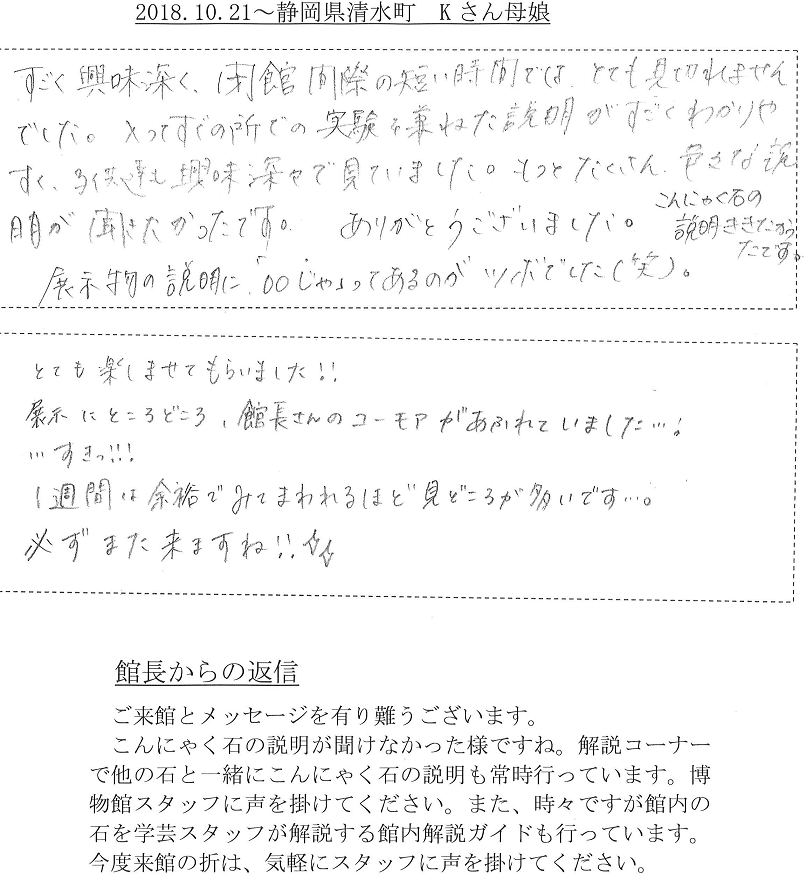 2018.10.21～静岡県清水町　Kさん母娘
すごく興味深く、閉館間際の短い時間では、とても見切れません
でした。入ってすぐの所での実験を兼ねた説明がすごくわかりや
すく、子供達も興味深々で見ていました。もっとたくさん、色々な説
明が聞きたかったです。ありがとうございました。
こんにゃく石の
説明ききたかっ
たです。
展示物の説明に、「〇〇じゃ」ってあるのがツボでした(笑)。
とても楽しませてもらいました!!
展示にところどころ、館長さんのユーモアがあふれていました…!
…すきっ!!!
1週間は余裕でみてまわれるほど見どころが多いです…。
必ずまた来ますね!!
館長からの返信
ご来館とメッセージを有り難うございます。
こんにゃく石の説明が聞けなかった様ですね。解説コーナー
で他の石と一緒にこんにゃく石の説明も常時行っています。博
物館スタッフに声を掛けてください。また、時々ですが館内の
石を学芸スタッフが解説する館内解説ガイドも行っています。
今度来館の折は、気軽にスタッフに声を掛けてください。